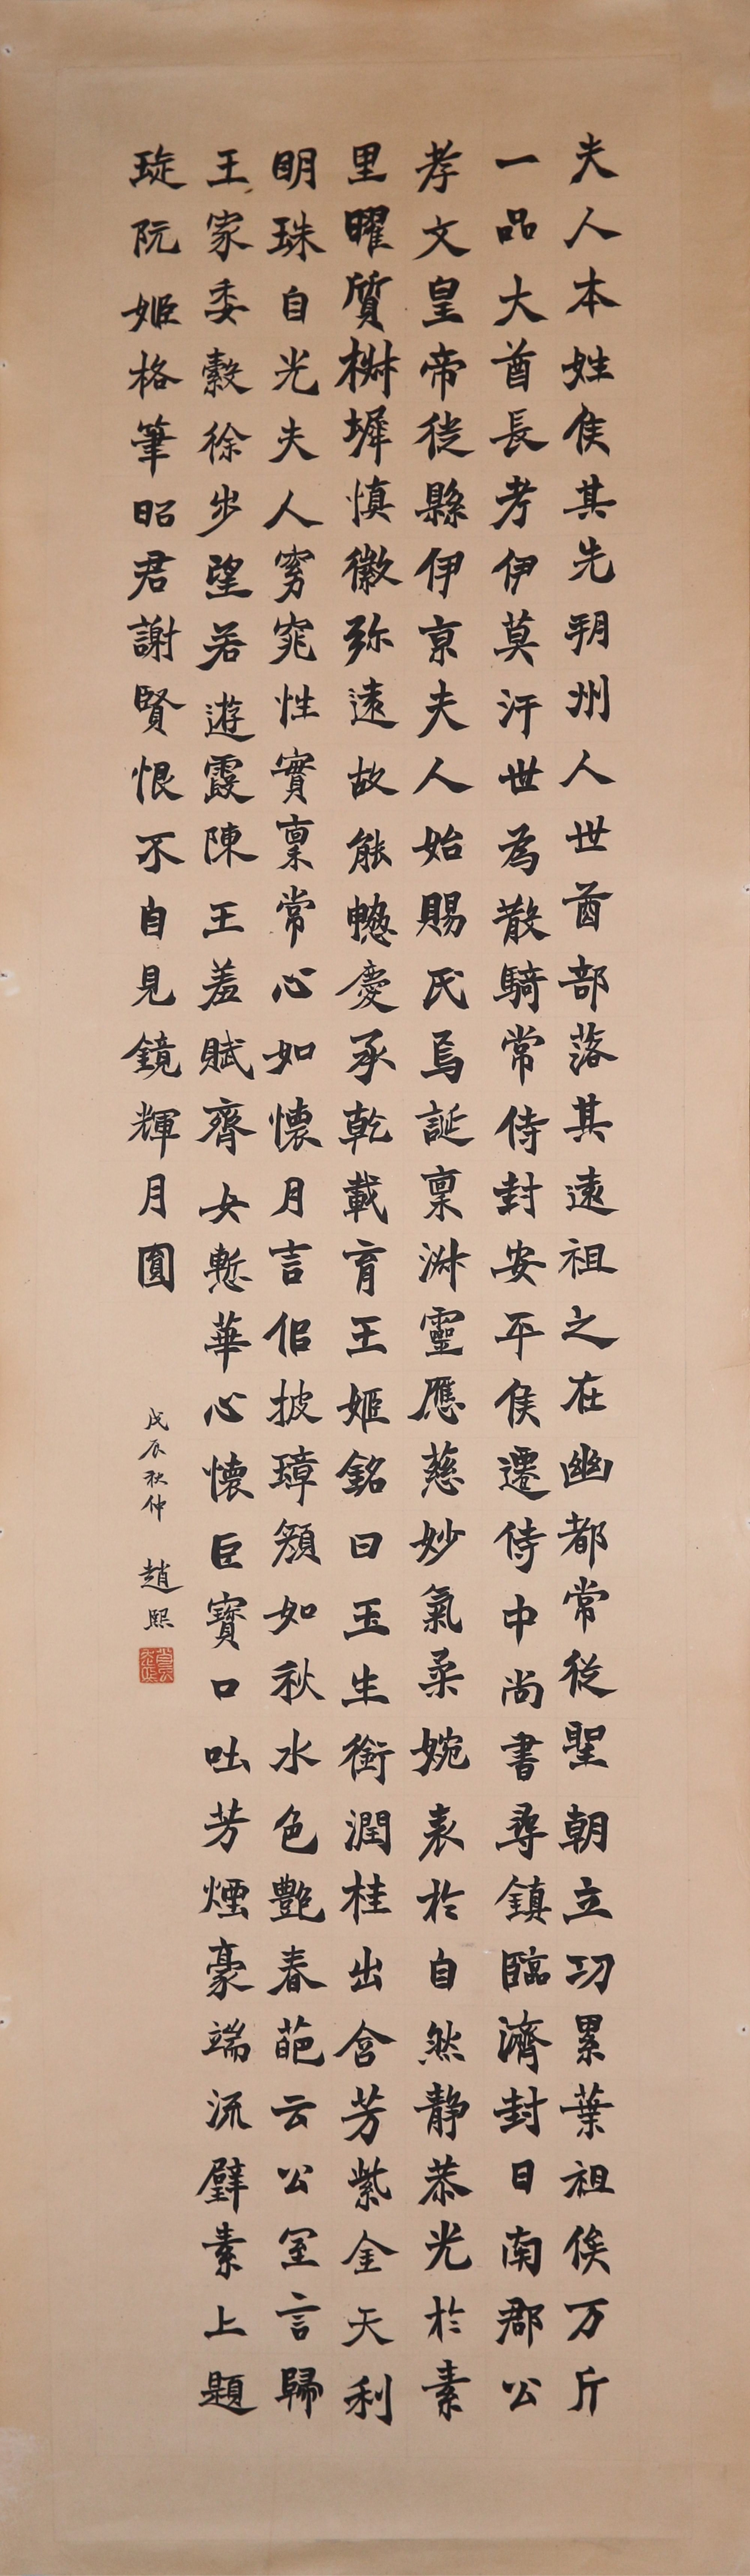 夫人本姓侯其先朔州人世酋部落其遠祖之在幽都常從聖朝立功累葉祖俟万斤
一品大酋長考伊莫汗世為散騎常侍封安平侯遷侍中尚書尋鎮臨濟封日南郡公
孝文皇帝徙縣伊京夫人始賜氏焉誕稟淋靈應慈妙氣柔婉表於自然静恭光於素
里曜質椒墀慎徽弥遠故能憁慶承乾載育王姬銘曰玉生衔潤桂出含芳紫金天利
明珠自光夫人窈窕性實稟常心如懷月言佀披璋顏如秋水色艷春葩云公室言歸
王家委縠徐步望若遊霞陳王羞賦齊女慙華心懷巨寶口吐芳煙豪端流璧素上題
琁阮姬格筆昭君謝賢恨不自見鏡輝月圓
戊辰秋仲 趙熙